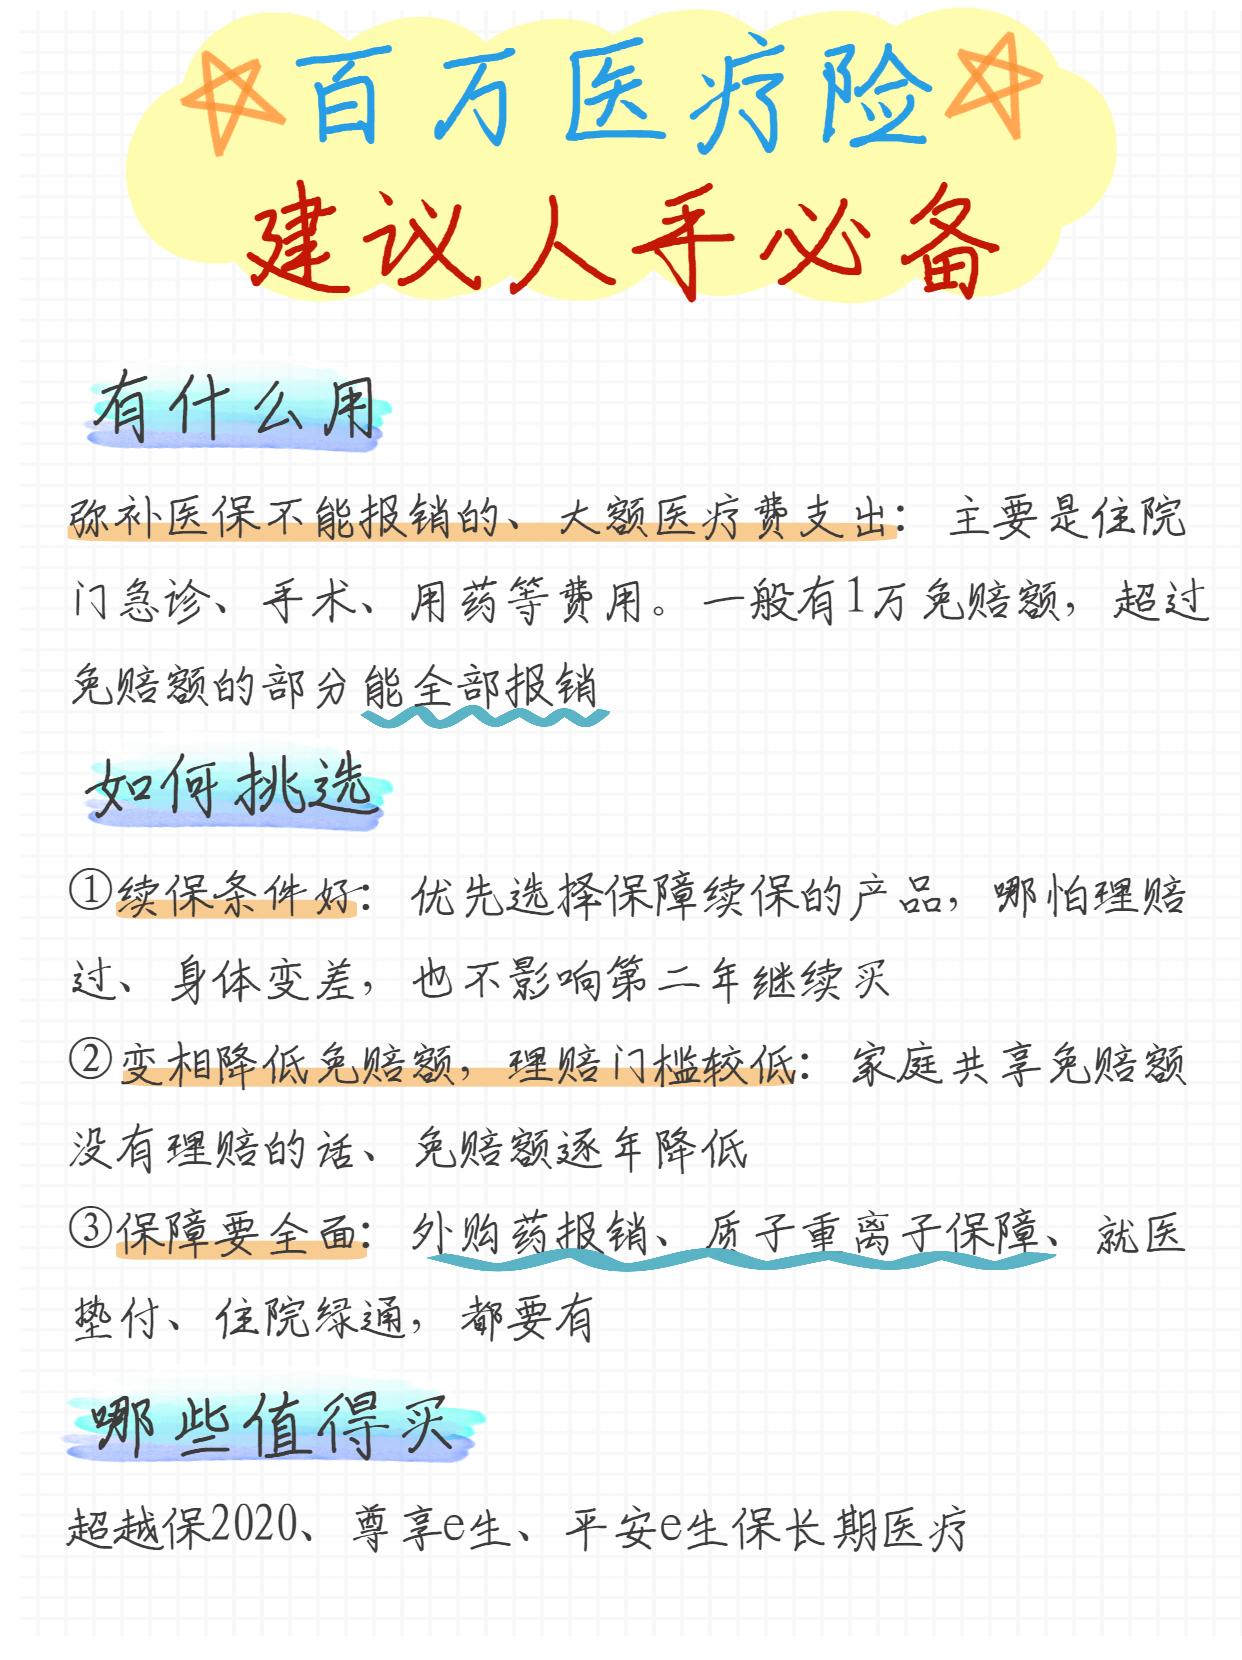 百万医疗险
建议人手必备
有什么用
弥补医保不能报销的、大额医疗费支出：主要是住院
门急诊、手术、用药等费用。一般有1万免赔额，超过
免赔额的部分能全部报销
如何挑选
①续保条件好：优先选择保障续保的产品，哪怕理赔
过、身体变差，也不影响第二年继续买
②变相降低免赔额，理赔门槛较低：家庭共享免赔额
没有理赔的话、免赔额逐年降低
③保障要全面：外购药报销、质子重离子保障、就医
垫付、住院绿通，都要有
哪些值得买
超越保2020、尊享e生、平安e生保长期医疗